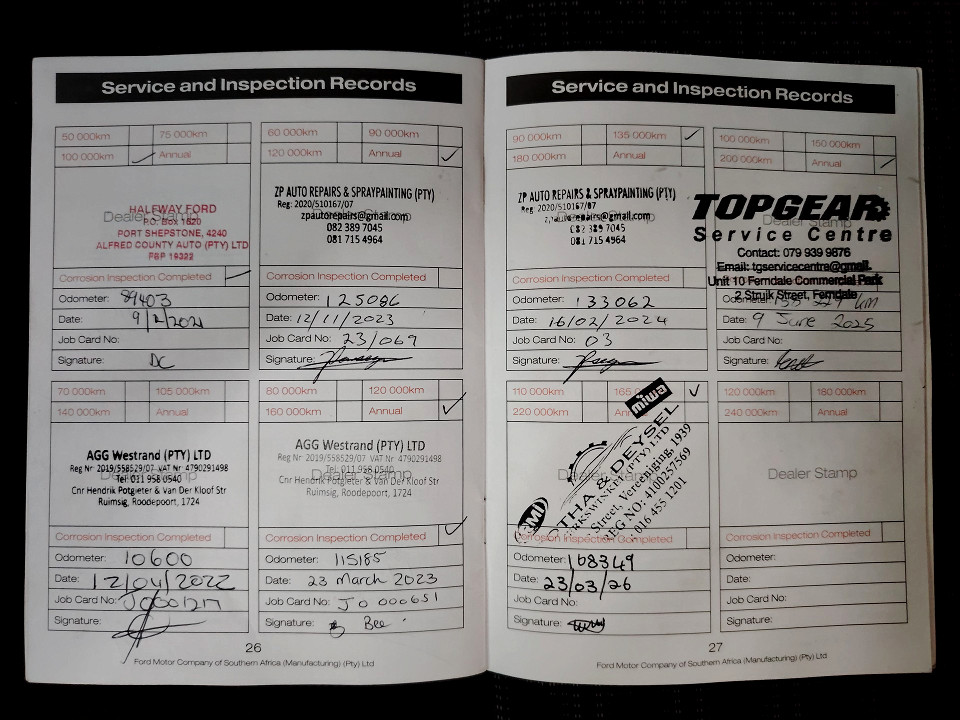 Service and Inspection Records
50 000km 75 000km
100 000km Annual
Dealer Stamp
HALFWAY FORD
P.O. Box 1520
PORT SHEPSTONE, 4240
ALFRED COUNTY AUTO (PTY) LTD
FBP 19322
Corrosion Inspection Completed
Odometer: 89403
Date: 9/2/2021
Job Card No:
Signature: DC
60 000km 90 000km
120 000km Annual
ZP AUTO REPAIRS & SPRAYPAINTING (PTY)
Reg: 2020/510167/07
zpautorepairs@gmail.com
082 389 7045
081 715 4964
Corrosion Inspection Completed
Odometer: 125086
Date: 12/11/2023
Job Card No: 23/069
Signature:
70 000km 105 000km
140 000km Annual
AGG Westrand (PTY) LTD
Reg Nr 2019/558529/07 VAT Nr 4790291498
Tel: 011 958 0540
Cnr Hendrik Potgieter & Van Der Kloof Str
Ruimsig, Roodepoort, 1724
Corrosion Inspection Completed
Odometer: 10600
Date: 12/04/2022
Job Card No:
Signature:
80 000km 120 000km
160 000km Annual
AGG Westrand (PTY) LTD
Reg Nr 2019/558529/07 VAT Nr 4790291498
Tel: 011 958 0540
Dealer Stamp
Cnr Hendrik Potgieter & Van Der Kloof Str
Ruimsig, Roodepoort, 1724
Corrosion Inspection Completed
Odometer: 115185
Date: 23 March 2023
Job Card No: JO 000651
Signature: Bee
26
Ford Motor Company of Southern Africa (Manufacturing) (Pty) Ltd
Service and Inspection Records
90 000km 135 000km
180 000km Annual
ZP AUTO REPAIRS & SPRAYPAINTING (PTY)
Reg: 2020/510167/07
082 389 7045
081 715 4964
Corrosion Inspection Completed
Odometer: 133062
Date: 16/02/2024
Job Card No: 03
Signature:
100 000km 150 000km
200 000km Annual
TOPGEAR
Service Centre
Contact: 079 939 9876
Email: tgservicecentre@gmail.
Unit 10 Ferndale Commercial Park
2 Struik Street, Ferndale
Odometer: km
Date: 9 June 2025
Job Card No:
Signature:
110 000km 165
220 000km Annual
miwa
THA & DEYSEL
(PTY) LTD
Street, Vereeniging, 1939
REG NO: 4100257569
016 455 1201
RMI
Corrosion Inspection Completed
Odometer: 108349
Date: 23/03/26
Job Card No:
Signature:
120 000km 180 000km
240 000km Annual
Dealer Stamp
Corrosion Inspection Completed
Odometer:
Date:
Job Card No:
Signature:
27
Ford Motor Company of Southern Africa (Manufacturing) (Pty) Ltd